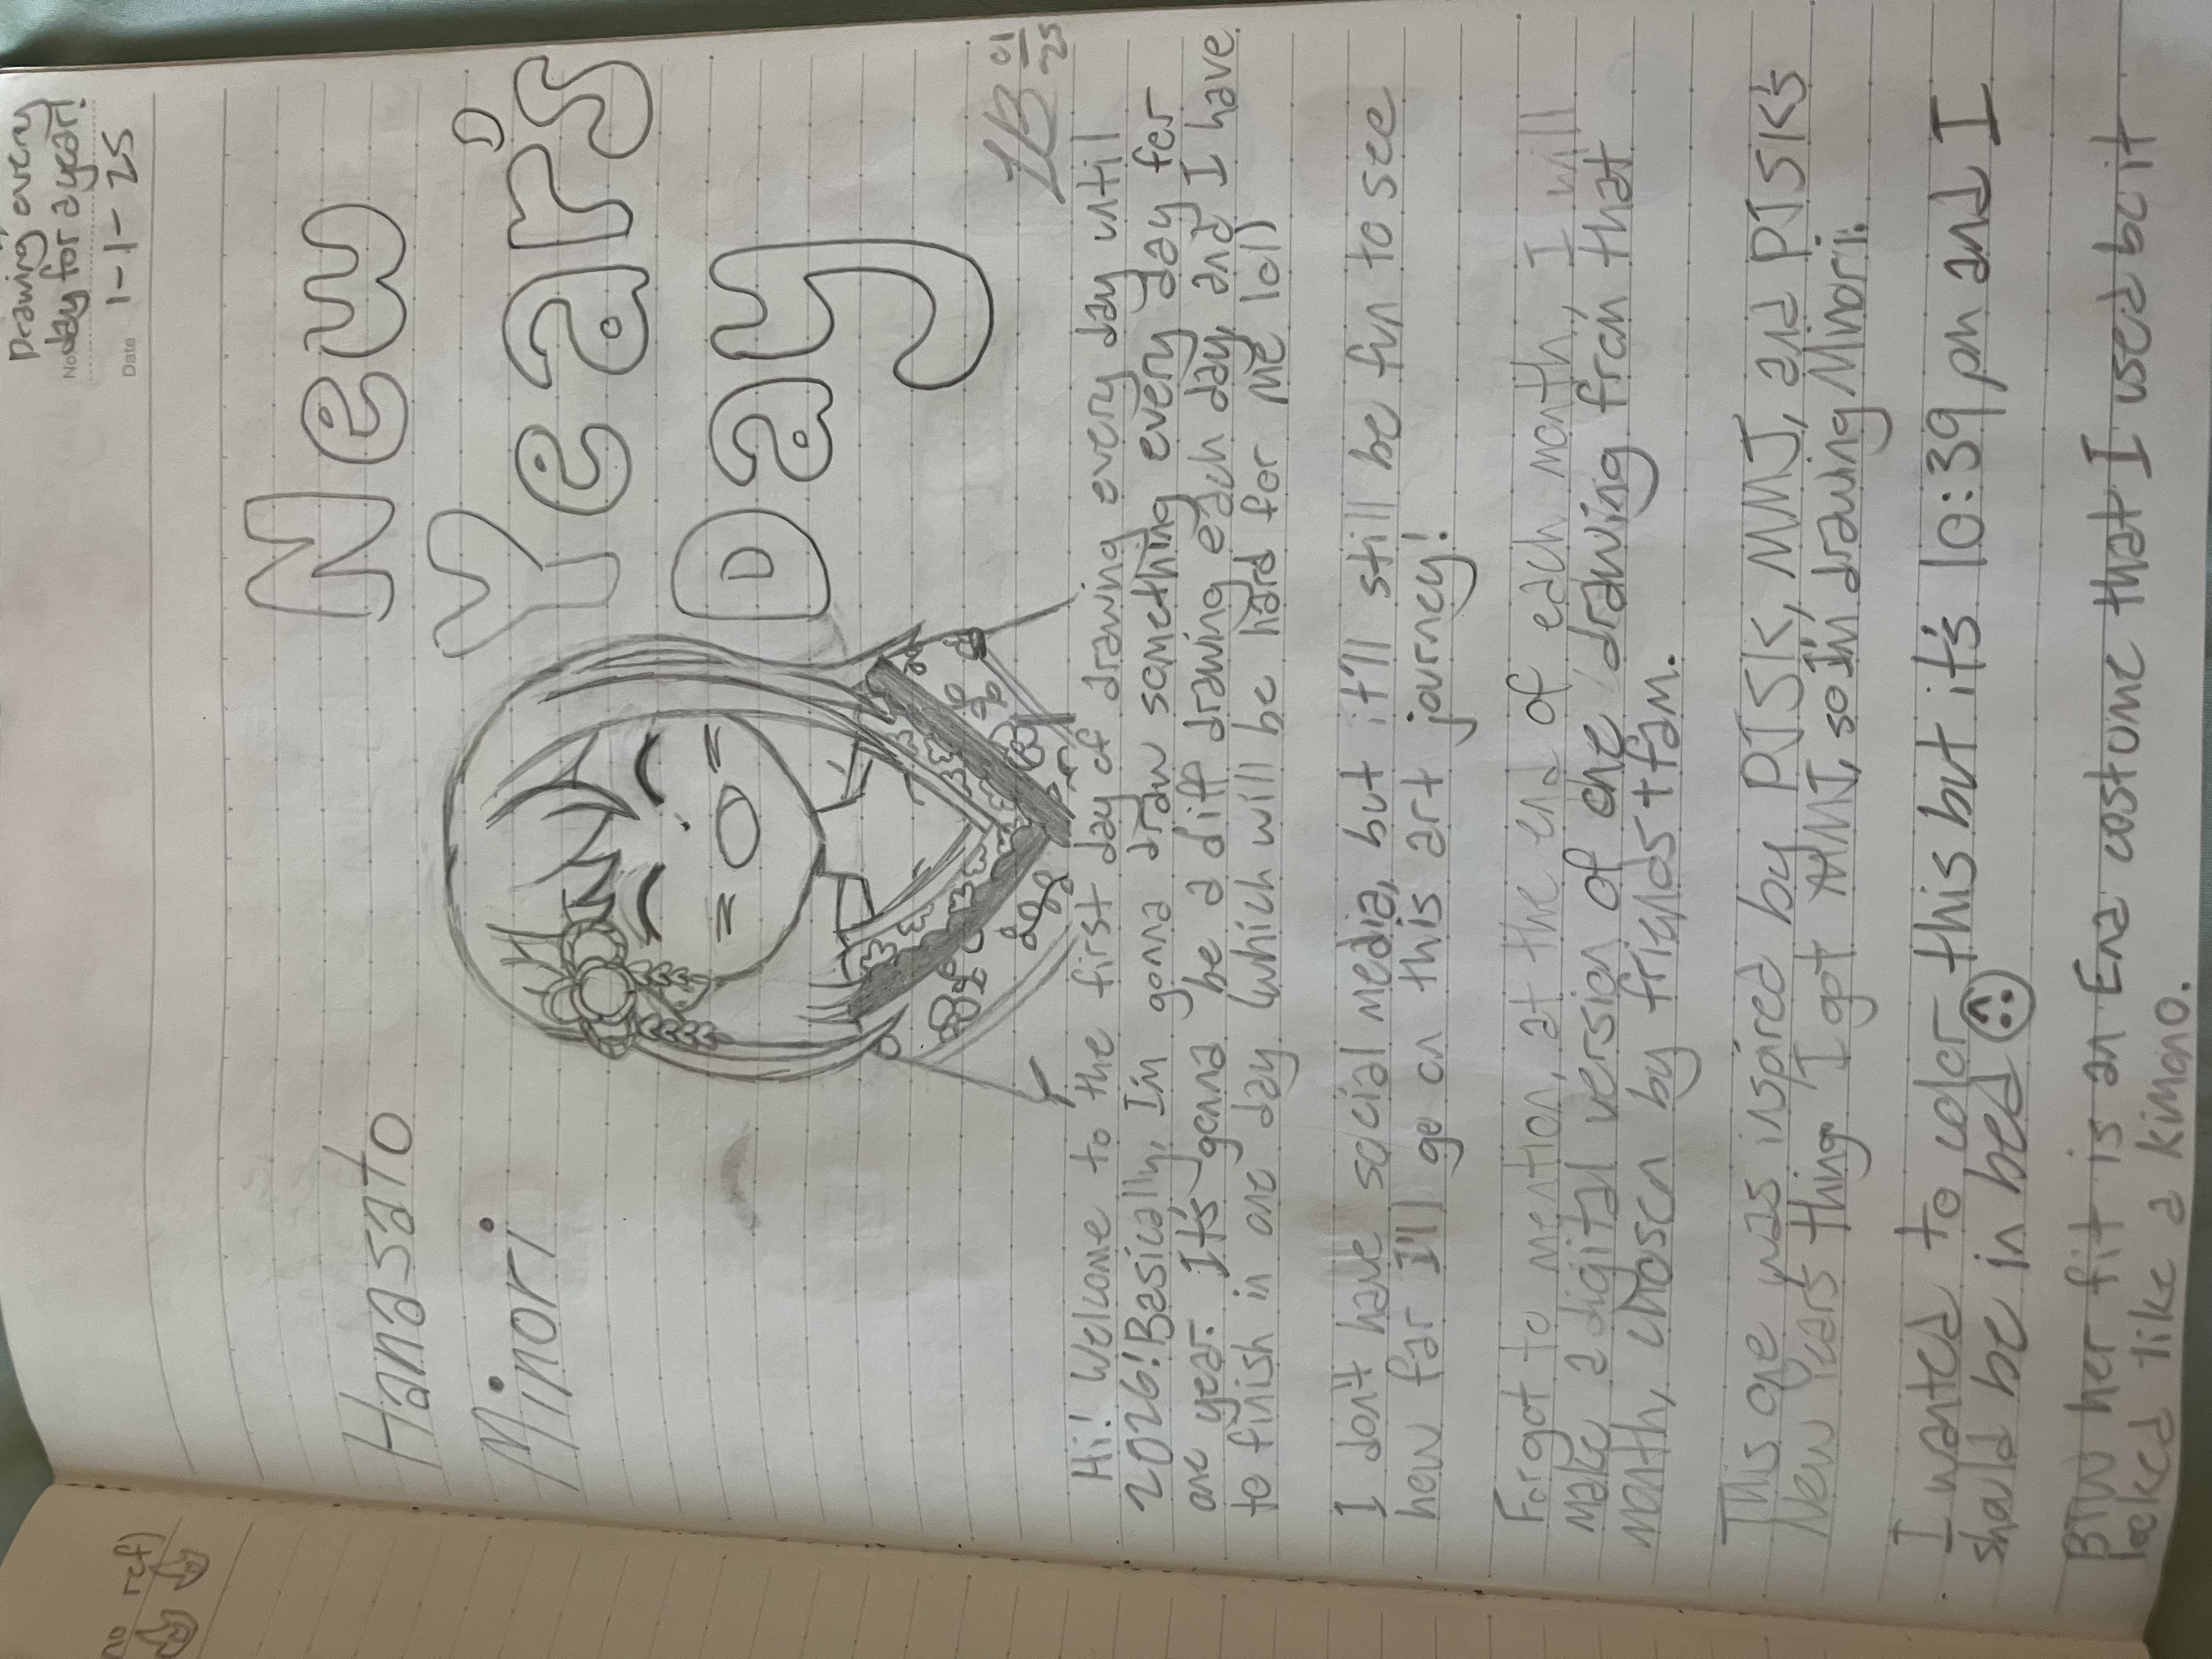 no ref)
Drawing every
No
day for a year!
Date 1-1-25
Hanasato
Minori
New
Year's
Day
01
25
Hi! Welcome to the first day of drawing every day until
2026! Basically, I'm gonna draw something every day for
one year. It's gonna be a diff drawing each day, and I have
to finish in one day (which will be hard for me lol)
I don't have social media, but it'll still be fun to see
how far I'll go on this art journey!
Forgot to mention, at the end of each month, I will
make a digital version of one drawing from that
month, chosen by friends + fam.
This one was inspired by PJSK, MMJ, and PJSK's
New Years thing. I got MMJ, so I'm drawing Minori.
I wanted to color this but it's 10:39 pm and I
should be in bed
BTW her fit is an Ena costume that I used bc it
looked like a kimono.